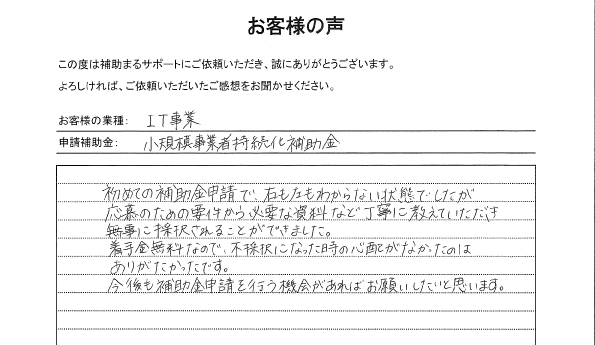 お客様の声
この度は補助まるサポートにご依頼いただき、誠にありがとうございます。
よろしければ、ご依頼いただいたご感想をお聞かせください。
お客様の業種： IT事業
申請補助金： 小規模事業者持続化補助金
初めての補助金申請で、右も左もわからない状態でしたが
応募のための要件から必要な資料など丁寧に教えていただき
無事に採択されることができました。
着手金無料なので、不採択になった時の心配がなかったのは
ありがたかったです。
今後も補助金申請を行う機会があればお願いしたいと思います。